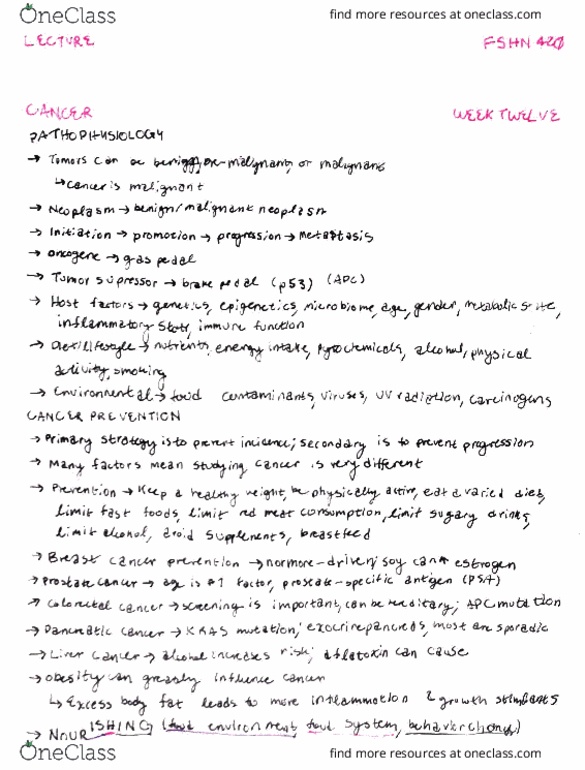 OneClass
find more resources at oneclass.com
LECTURE
FSHN 420
CANCER
WEEK TWELVE
PATHOPHYSIOLOGY
→ Tumors can be benign, pre-malignant, or malignant
↳ cancer is malignant
→ Neoplasm → benign/malignant neoplasm
→ Initiation → promotion → progression → Metastasis
→ oncogene → gas pedal
→ Tumor supressor → brake pedal (p53) (APC)
→ Host factors → genetics, epigenetics, microbiome, age, gender, metabolic state,
inflammatory state, immune function
→ Diet/lifestyle → nutrients, energy intake, alcohol, physical
activity, smoking
→ Environmental → food contaminants, viruses, UV radiation, carcinogens
CANCER PREVENTION
→ Primary strategy is to prevent incidence; secondary is to prevent progression
→ Many factors mean studying cancer is very different
→ Prevention → Keep a healthy weight, be physically active, eat a varied diet,
limit fast foods, limit red meat consumption, limit sugary drinks,
limit alcohol, avoid supplements, breastfeed
→ Breast cancer prevention → hormone-driven; soy can ↑ estrogen
→ Prostate cancer → age is #1 factor, prostate-specific antigen (PSA)
→ Colorectal cancer → screening is important, can be hereditary; APC mutation
→ Pancreatic cancer → KRAS mutation; most are sporadic
→ Liver cancer → alcohol increases risk; aflatoxin can cause
→ obesity can greatly influence cancer
↳ Excess body fat leads to more inflammation & growth stimulants
→ NOURISHING (food environment, food system, behavior change)
OneClass
find more resources at oneclass.com